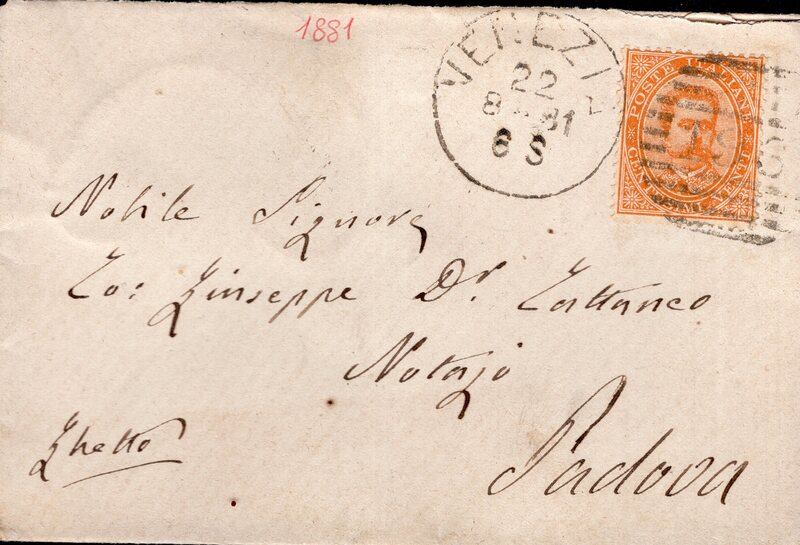 1881
VENEZIA
22
8 - 81
6 S
POSTE ITALIANE
CENTESIMI VENTI
Nobile Signore
Giuseppe Dr. Cattaneo
Notajo
Ghetto
Padova